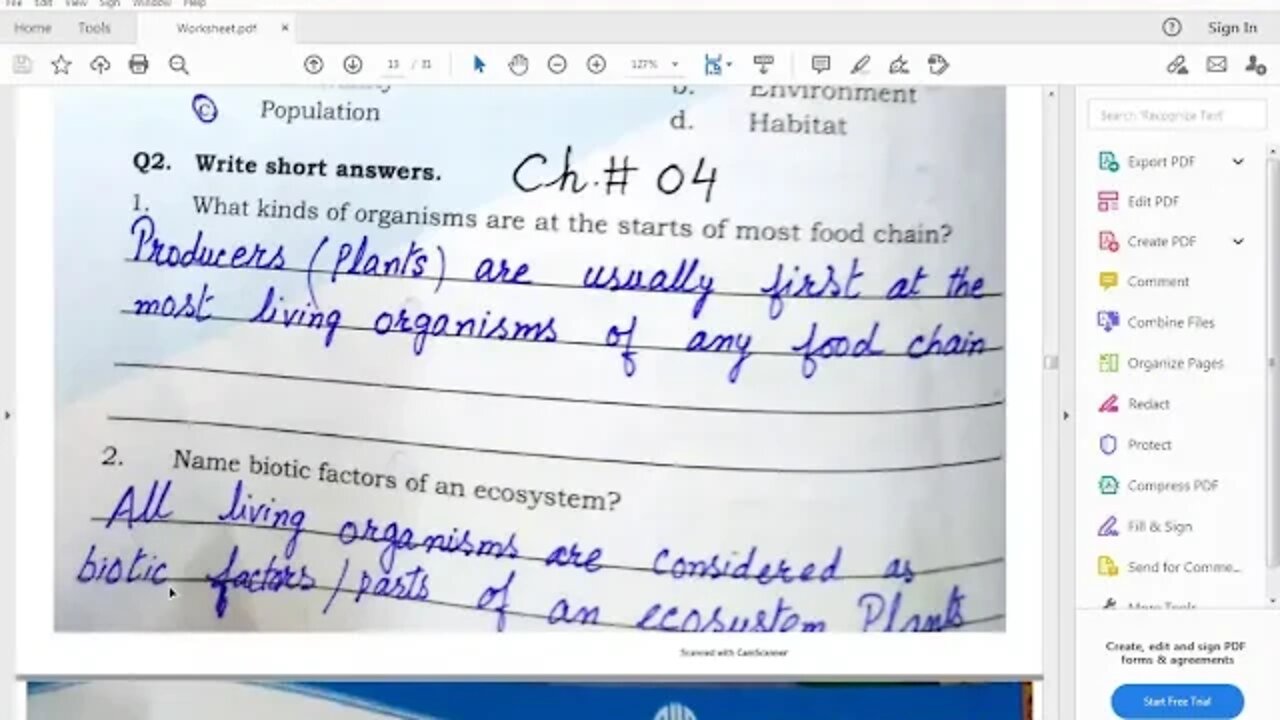 Home Tools Worksheet.pdf × Sign In
13 / 31 127%
Environment
C Population
d. Habitat
Q2. Write short answers. Ch.# 04
1. What kinds of organisms are at the starts of most food chain?
Producers (Plants) are usually first at the
most living organisms of any food chain
2. Name biotic factors of an ecosystem?
All living organisms are considered as
biotic factors / parts of an ecosystem Plants
Scanned with CamScanner
Search 'Recognize Text'
Export PDF
Edit PDF
Create PDF
Comment
Combine Files
Organize Pages
Redact
Protect
Compress PDF
Fill & Sign
Send for Comme...
More Tools
Create, edit and sign PDF
forms & agreements
Start Free Trial